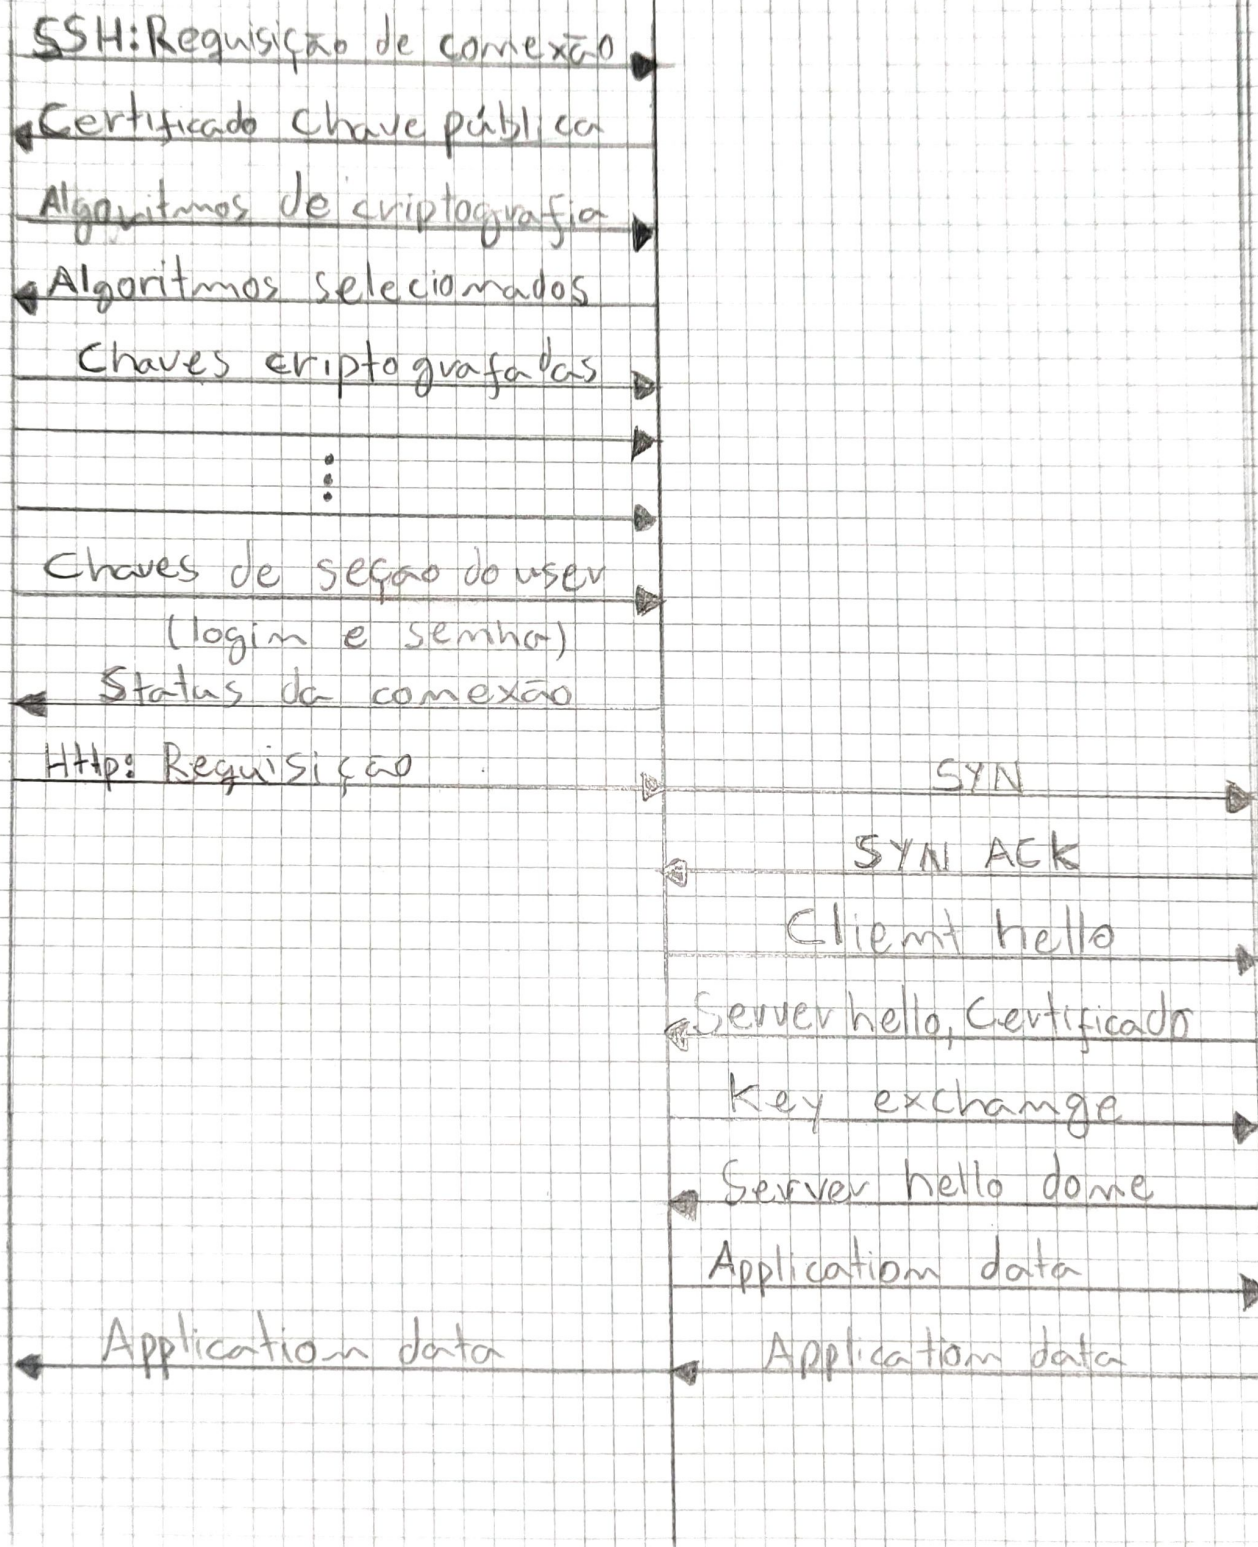 SSH: Requisição de conexão
Certificado chave pública
Algoritmos de criptografia
Algoritmos selecionados
Chaves criptografadas
Chaves de seção do user
(login e senha)
Status da conexão
Http: Requisição
SYN
SYN ACK
Client hello
Server hello, Certificado
Key exchange
Server hello done
Application data
Application data
Application data